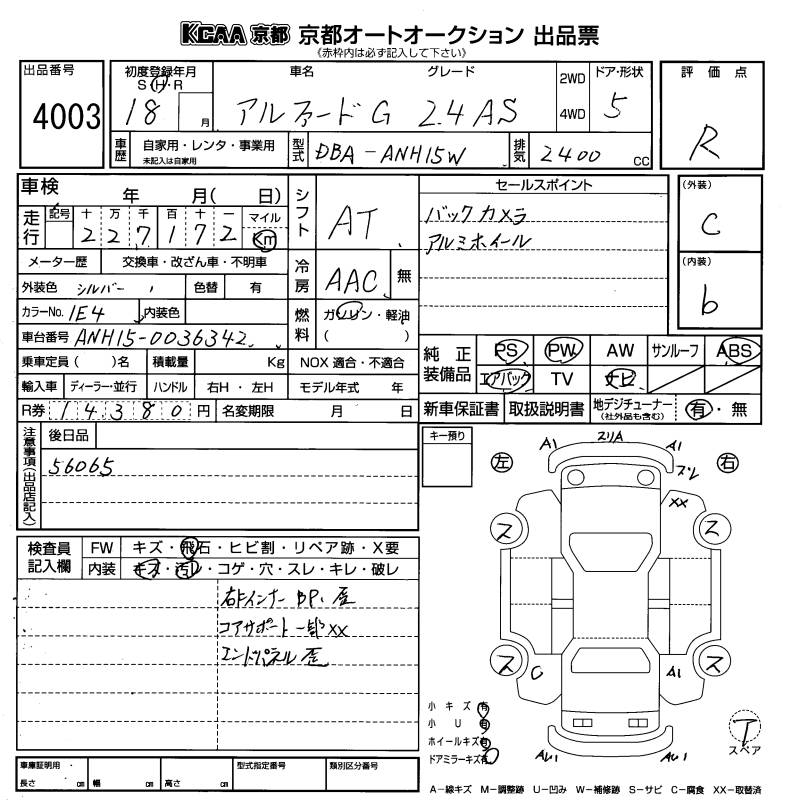 KCAA 京都 京都オートオークション 出品票
《赤枠内は必ず記入して下さい》
出品番号
4003
初度登録年月
S・H・R
18 月
車名 グレード
アルファード G 2.4 AS
2WD
4WD
ドア・形状
5
評価点
R
車歴
自家用・レンタ・事業用
未記入は自家用
型式
DBA-ANH15W
排気
2400 CC
車検 年 月( 日)
走行
記号 十 万 千 百 十 一 マイル
2 2 7 1 7 2 Km
シフト
AT
メーター歴 交換車・改ざん車・不明車
外装色 シルバー 色替 有
カラーNo. 1E4 内装色
冷房
AAC 無
燃料
ガソリン・軽油
( )
車台番号 ANH15-0036342
乗車定員 ( )名 積載量 Kg NOX 適合・不適合
輸入車 ディーラー・並行 ハンドル 右H・左H モデル年式 年
R券 14380 円 名変期限 月 日
セールスポイント
バックカメラ
アルミホイール
(外装)
C
(内装)
b
純正装備品
PS PW AW サンルーフ ABS
エアバック TV ナビ
新車保証書 取扱説明書 地デジチューナー
(社外品も含む)
有・無
注意事項(出品店記入)
後日品
56065
キー預り
検査員記入欄
FW キズ・飛石・ヒビ割・リペア跡・X要
内装 キズ・汚レ・コゲ・穴・スレ・キレ・破レ
右Fインナー BP、歪
コアサポート一部XX
エンドパネル 歪
左 右
A1 スリA A1
ズレ
XX
ス ス
ス ス
C A1
AU1 AU1
小キズ 有
小U 有
ホイールキズ 有
ドアミラーキズ 有
T
スペア
車庫証明用
長さ cm 幅 cm 高さ cm
型式指定番号 類別区分番号
A-線キズ M-調整跡 U-凹み W-補修跡 S-サビ C-腐食 XX-取替済